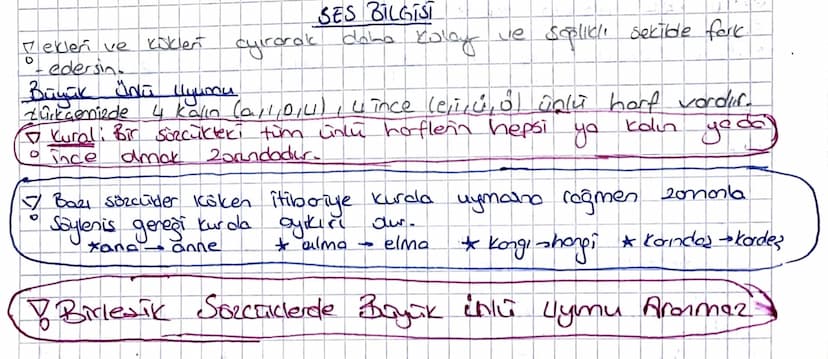 SES BİLGİSİ
ekleri ve kökleri ayırarak daha kolay ve sağlıklı şekilde fark
edersin.
Büyük Ünlü Uyumu
türkçemizde 4 kalın (a,ı,o,u), 4 ince (e,i,ü,ö) ünlü harf vardır.
Kural: Bir sözcükteki tüm ünlü harflerin hepsi ya kalın yada
ince olmak zorundadır.
Bazı sözcükler köken itibariye kurala uymasına rağmen zamanla
Söyleniş gereği kurala aykırı olur.
*ana → anne * alma → elma * kangı → hangi * karındaş → kardeş
Birleşik Sözcüklerde Büyük ünlü Uyumu Aranmaz